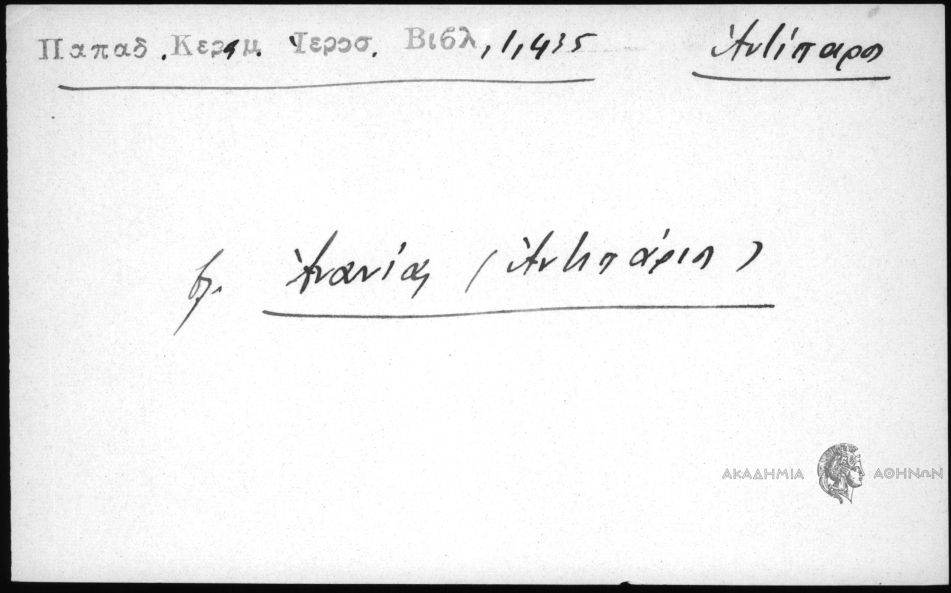 Παπαδ. Κεραμ. Ἱεροσ. Βιβλ, 1, 435 Ἀντίπαρος
βλ. Ἀνανίας (Ἀντιπάριος)
ΑΚΑΔΗΜΙΑ ΑΘΗΝΩΝ